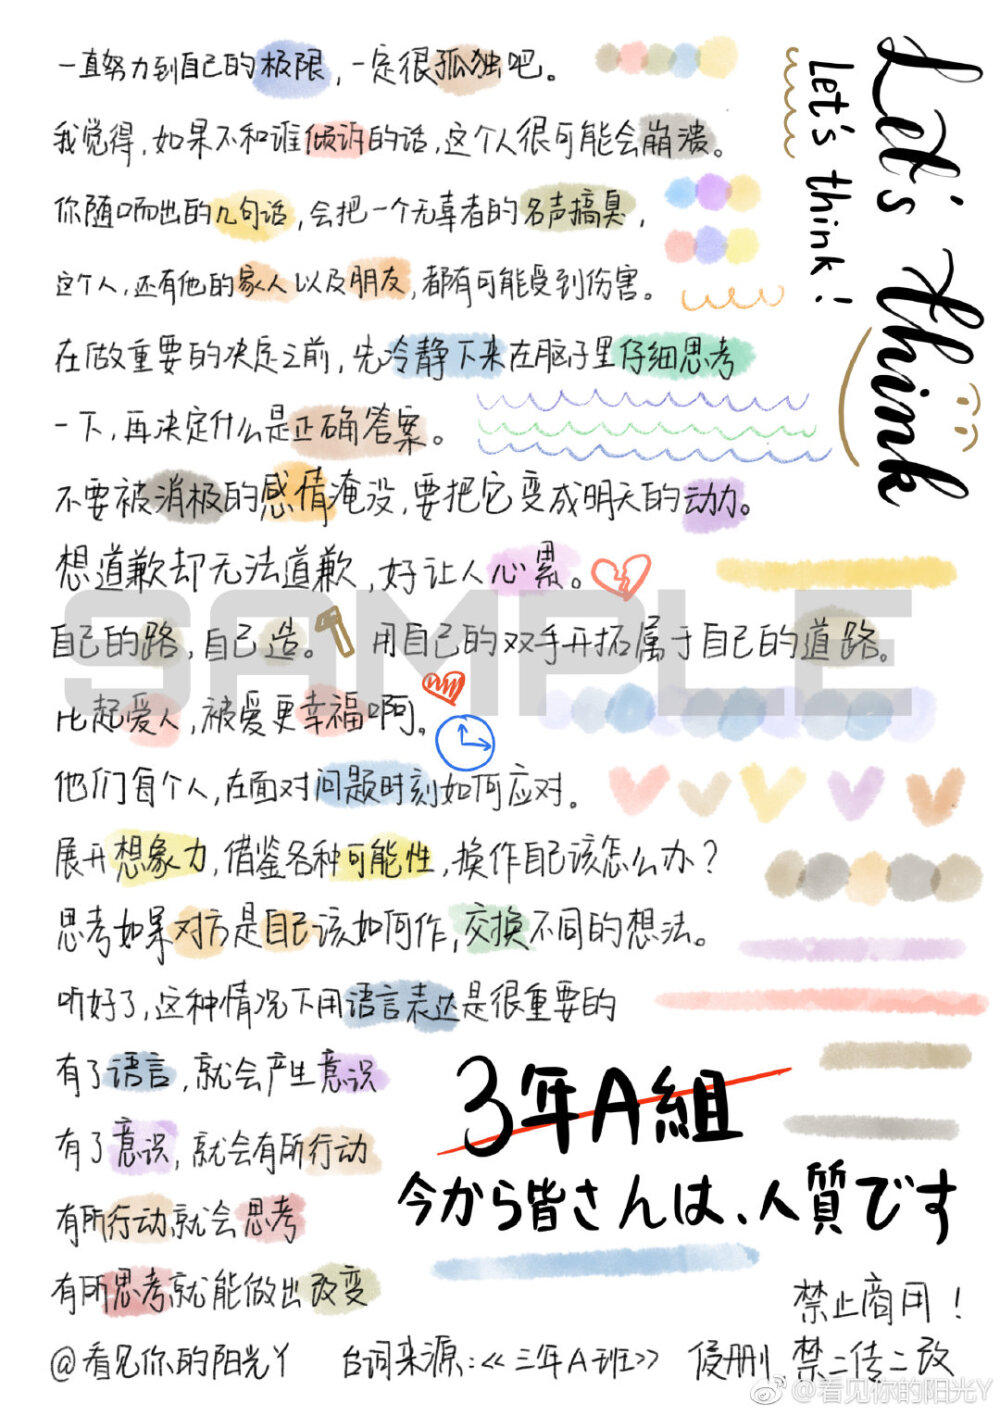 一直努力到自己的极限，一定很孤独吧。
我觉得，如果不和谁倾诉的话，这个人很可能会崩溃。
你随口而出的几句话，会把一个无辜者的名声搞臭，
这个人，还有他的家人以及朋友，都有可能受到伤害。
在做重要的决定之前，先冷静下来在脑子里仔细思考
一下，再决定什么是正确答案。
不要被消极的感情淹没，要把它变成明天的动力。
想道歉却无法道歉，好让人心累。
自己的路，自己造。 用自己的双手开拓属于自己的道路。
比起爱人，被爱更幸福啊。
他们每个人，在面对问题时刻如何应对。
展开想象力，借鉴各种可能性，换作自己该怎么办？
思考如果对方是自己该如何作，交换不同的想法。
听好了，这种情况下用语言表达是很重要的
有了语言，就会产生意识
有了意识，就会有所行动
有所行动就会思考
有所思考就能做出改变
@看见你的阳光丫 台词来源：<<三年A班>> 侵删 禁二传二改
Let's think
Let's think！
SAMPLE
3年A組
今から皆さんは、人質です
禁止商用！
@看见你的阳光Y